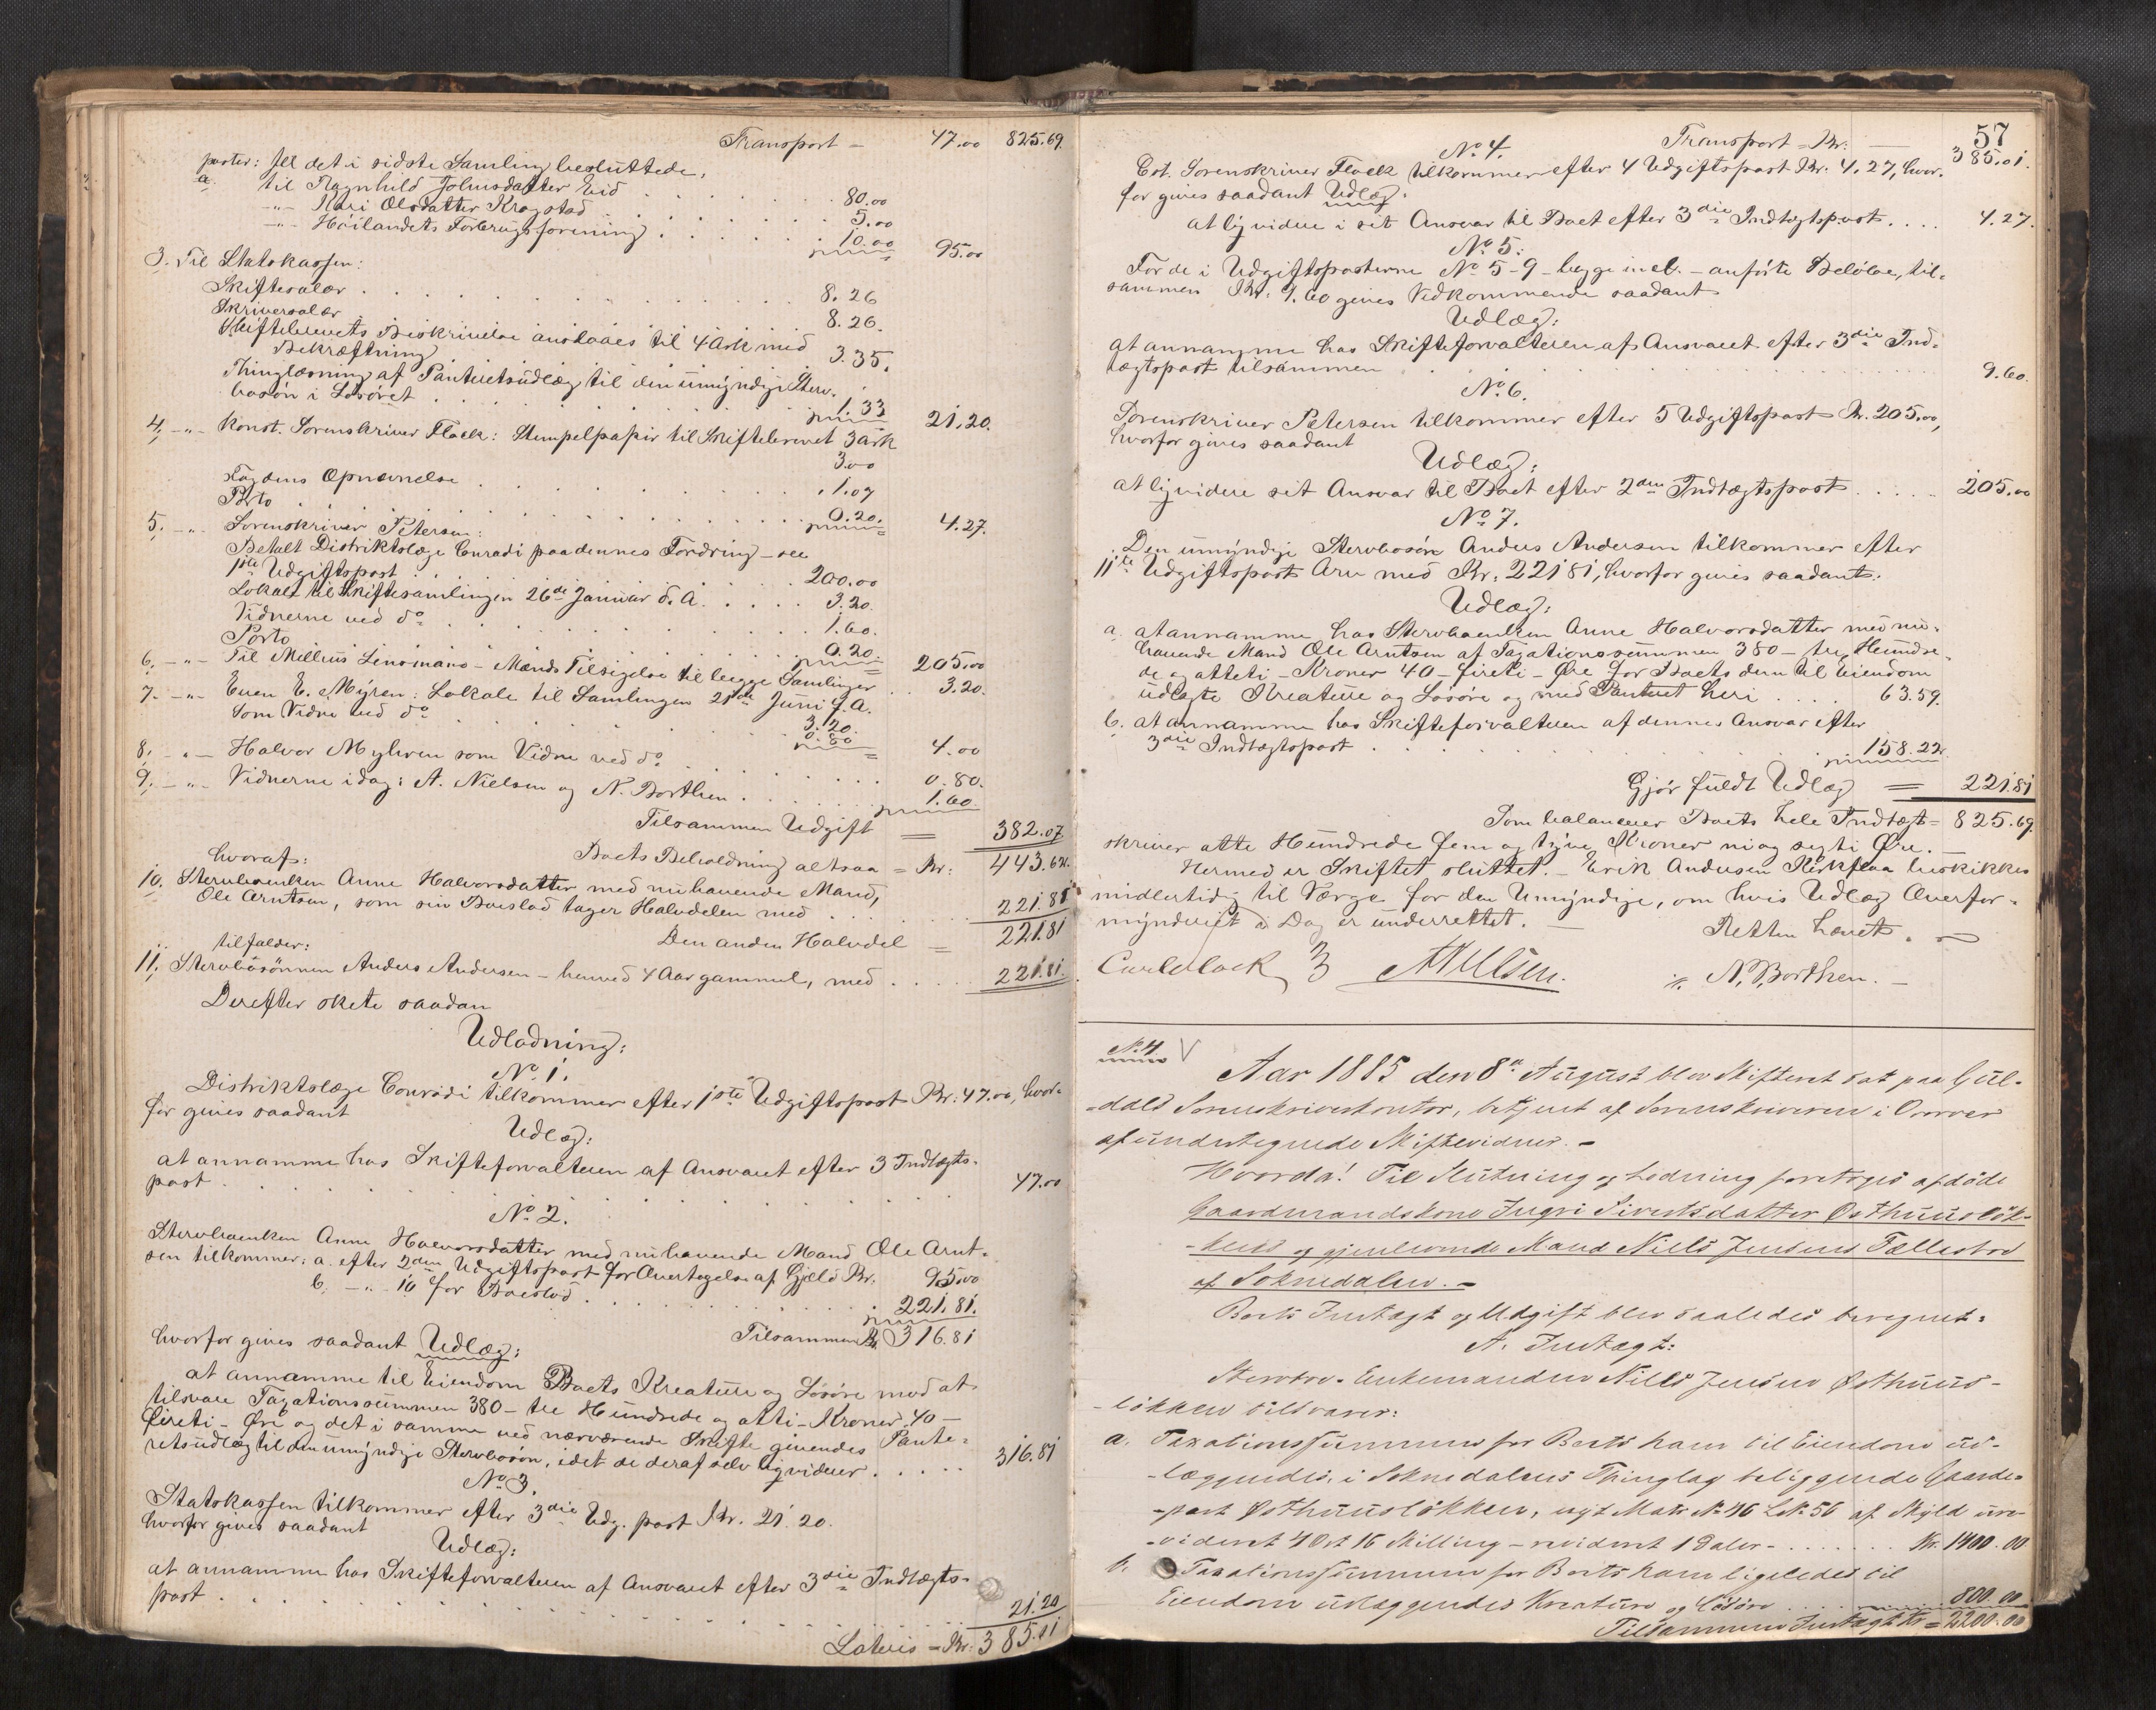 Transport - 47.00 825.69.
poster: til det i sidste Samling besluttede,
a. til Ragnhild Johnsdatter Eid . . . 80.00
-"- Kari Olsdatter Kragstad . . . 5.00
-"- Höilandets Forbrugsforening . . . 10.00 95.00
3. Til Statskassen:
Skiftesalær . . . 8.26
Skriversalær . . . 8.26.
Skiftebrevets Beskrivelse anslaaes til 4 Ark med
Bekræftning 3.35.
Thinglæsning af Panteretsudlæg til den umyndige Sterv-
bosön i Lösöret . . . 1.33 21.20.
4. -"- Konst. Sorenskriver Flock: Stempelpapir til Skiftebrevet 3 Ark
3.00
Fogdens Opnævnelse . . . 1.07
Porto . . . 0.20. 4.27.
5. -"- Sorenskriver Petersen:
Betalt Distriktslæge Conradi paa dennes Fordring - see
1ste Udgiftspost . . . 200.00
Lokale til Skiftesamlingen 26de Januar d. A. . . . 3.20.
Vidnerne ved do . . . 1.60.
Porto . . . 0.20. 205.00
6. -"- Til Mellius Lensmans-Mænds Tilsigelse til begge Samlinger . 3.20.
7. -"- Even E. Myren: Lokale til Samlingen 21de Juni f. A.
3.20.
Som Vidne ved do . . . 0.80 4.00
8. -"- Halvor Myhren som Vidne ved do . . . 0.80.
9. -"- Vidnerne idag: A. Nielsen og N. Borthen . . . 1.60.
Tilsammen Udgift = 382.07
Boets Beholdning altsaa = Kr: 443.62.
hvoraf:
10. Stervboenken Anne Halvorsdatter med nuhavende Mand,
Ole Arntsen, som sin Boeslod tager Halvdelen med . . . 221.81
Den anden Halvdel = 221.81
tilfalder:
11. Stervbosönnen Anders Andersen - henved 4 Aar gammel, med . . . 221.81.
Derefter skete saadan
Udlodning:
No 1.
Distriktslæge Conradi tilkommer efter 1ste Udgiftspost Kr: 47.00, hvor-
for gives saadant
Udlæg:
at annamme hos Skifteforvalteren af Ansvaret efter 3 Indtægts-
post . . . 47.00
No 2.
Stervboenken Anne Halvorsdatter med nuhavende Mand Ole Arnt-
sen tilkommer: a. efter 2den Udgiftspost for Overtagelse af Gjeld Kr. 95.00
b. -"- 10 for Boeslod . . . 221.81.
Tilsammen Kr. 316.81
hvorfor gives saadant Udlæg:
at annamme til Eiendom Boets Kreature og Lösöre mod at
tilsvare Taxationssummen 380 - tre Hundrede og otti - Kroner 40 -
fireti - Öre og det i samme ved nærværende Skifte givendes Pante-
retsudlæg til den umyndige Stervbosön, idet de deraf selv liqviderer . . . 316.81
No 3.
Statskassen tilkommer efter 3die Udg. post Kr. 21.20.
hvorfor gives saadant
Udlæg:
at annamme hos Skifteforvalteren af Ansvaret efter 3die Indtægts-
post . . . 21.20
Lateris = Kr: 385.01
57
Transport = Kr. - 385.01.
No 4.
Cst. Sorenskriver Flock tilkommer efter 4 Udgiftspost Kr. 4.27, hvor-
for gives saadant Udlæg:
at liqvidere i sit Ansvar til Boet efter 3die Indtægtspost . . . 4.27.
No 5:
For de i Udgiftsposterne No 5-9 - begge incl. - anförte Belöbe, til-
sammen Kr. 9.60 gives Vedkommende saadant
Udlæg:
at annamme hos Skifteforvalteren af Ansvaret efter 3die Ind-
tægtspost tilsammen . . . 9.60.
No 6.
Sorenskriver Petersen tilkommer efter 5 Udgiftspost Kr. 205.00,
hvorfor gives saadant
Udlæg:
at liqvidere sit Ansvar til Boet efter 2den Indtægtspost . . . 205.00
No 7.
Den umyndige Stervbosön Anders Andersen tilkommer efter
11te Udgiftspost Arv med Kr. 221.81, hvorfor gives saadant
Udlæg:
a. at annamme hos Stervboenken Anne Halvorsdatter med nu-
havende Mand Ole Arntsen af Taxationssummen 380 - tre Hundre-
de og otteti - Kroner 40 - fireti - Öre for Boets dem til Eiendom
udlagte Kreature og Lösöre og med Panteret heri . . . 63.59.
b. at annamme hos Skifteforvalteren af dennes Ansvar efter
3die Indtægtspost . . . 158.22.
Gjör fuldt Udlæg = 221.81
Som balancerer Boets hele Indtægt = 825.69.
skriver otte Hundrede fem og tyve Kroner ni og sexti Öre. -
Hermed er Skiftet sluttet. - Erik Andersen Kirkflaa beskikkes
midlertidig til Værge for den Umyndige, om hvis Udlæg Overfor-
mynderiet i Dag er underrettet. -
Retten hævet. -
Carl Flock A Nielsen. N. Borthen. -
No 4
Aar 1885 den 8de August blev Skifteret sat paa Gul-
-dals Sorenskriverkontor, betjent af Sorenskriveren i Overvær
af undertegnede Skiftevidner. -
Hvorda! Til Slutning og Lodning foretoges afdöde
Gaardmandskone Ingri Sivertsdatter Østhuuslök-
-kens og gjenlevende Mand Niels Jensens Fællesbo
af Soknedalen. -
Boets Indtægt og Udgift blev saaledes beregnet:
A. Indtægt:
Stervbo-Enkemanden Niels Jensen Østhuus-
-lökken tilsvarer:
a. Taxationssummen for Boets ham til Eiendom ud-
-læggendes, i Soknedalens Thinglag beliggende Gaarde-
-part Østhuuslökken, nyt Matr No 46 L No 56 af Skyld ure-
-videret 4 Ort 16 Skilling - revideret 1 Daler - . . . Kr. 1400.00
b. Taxationssummen for Boets ham ligeledes til
Eiendom udlæggendes Kreature og Lösöre . . . 800.00
Tilsammen Indtægt Kr = 2200.00